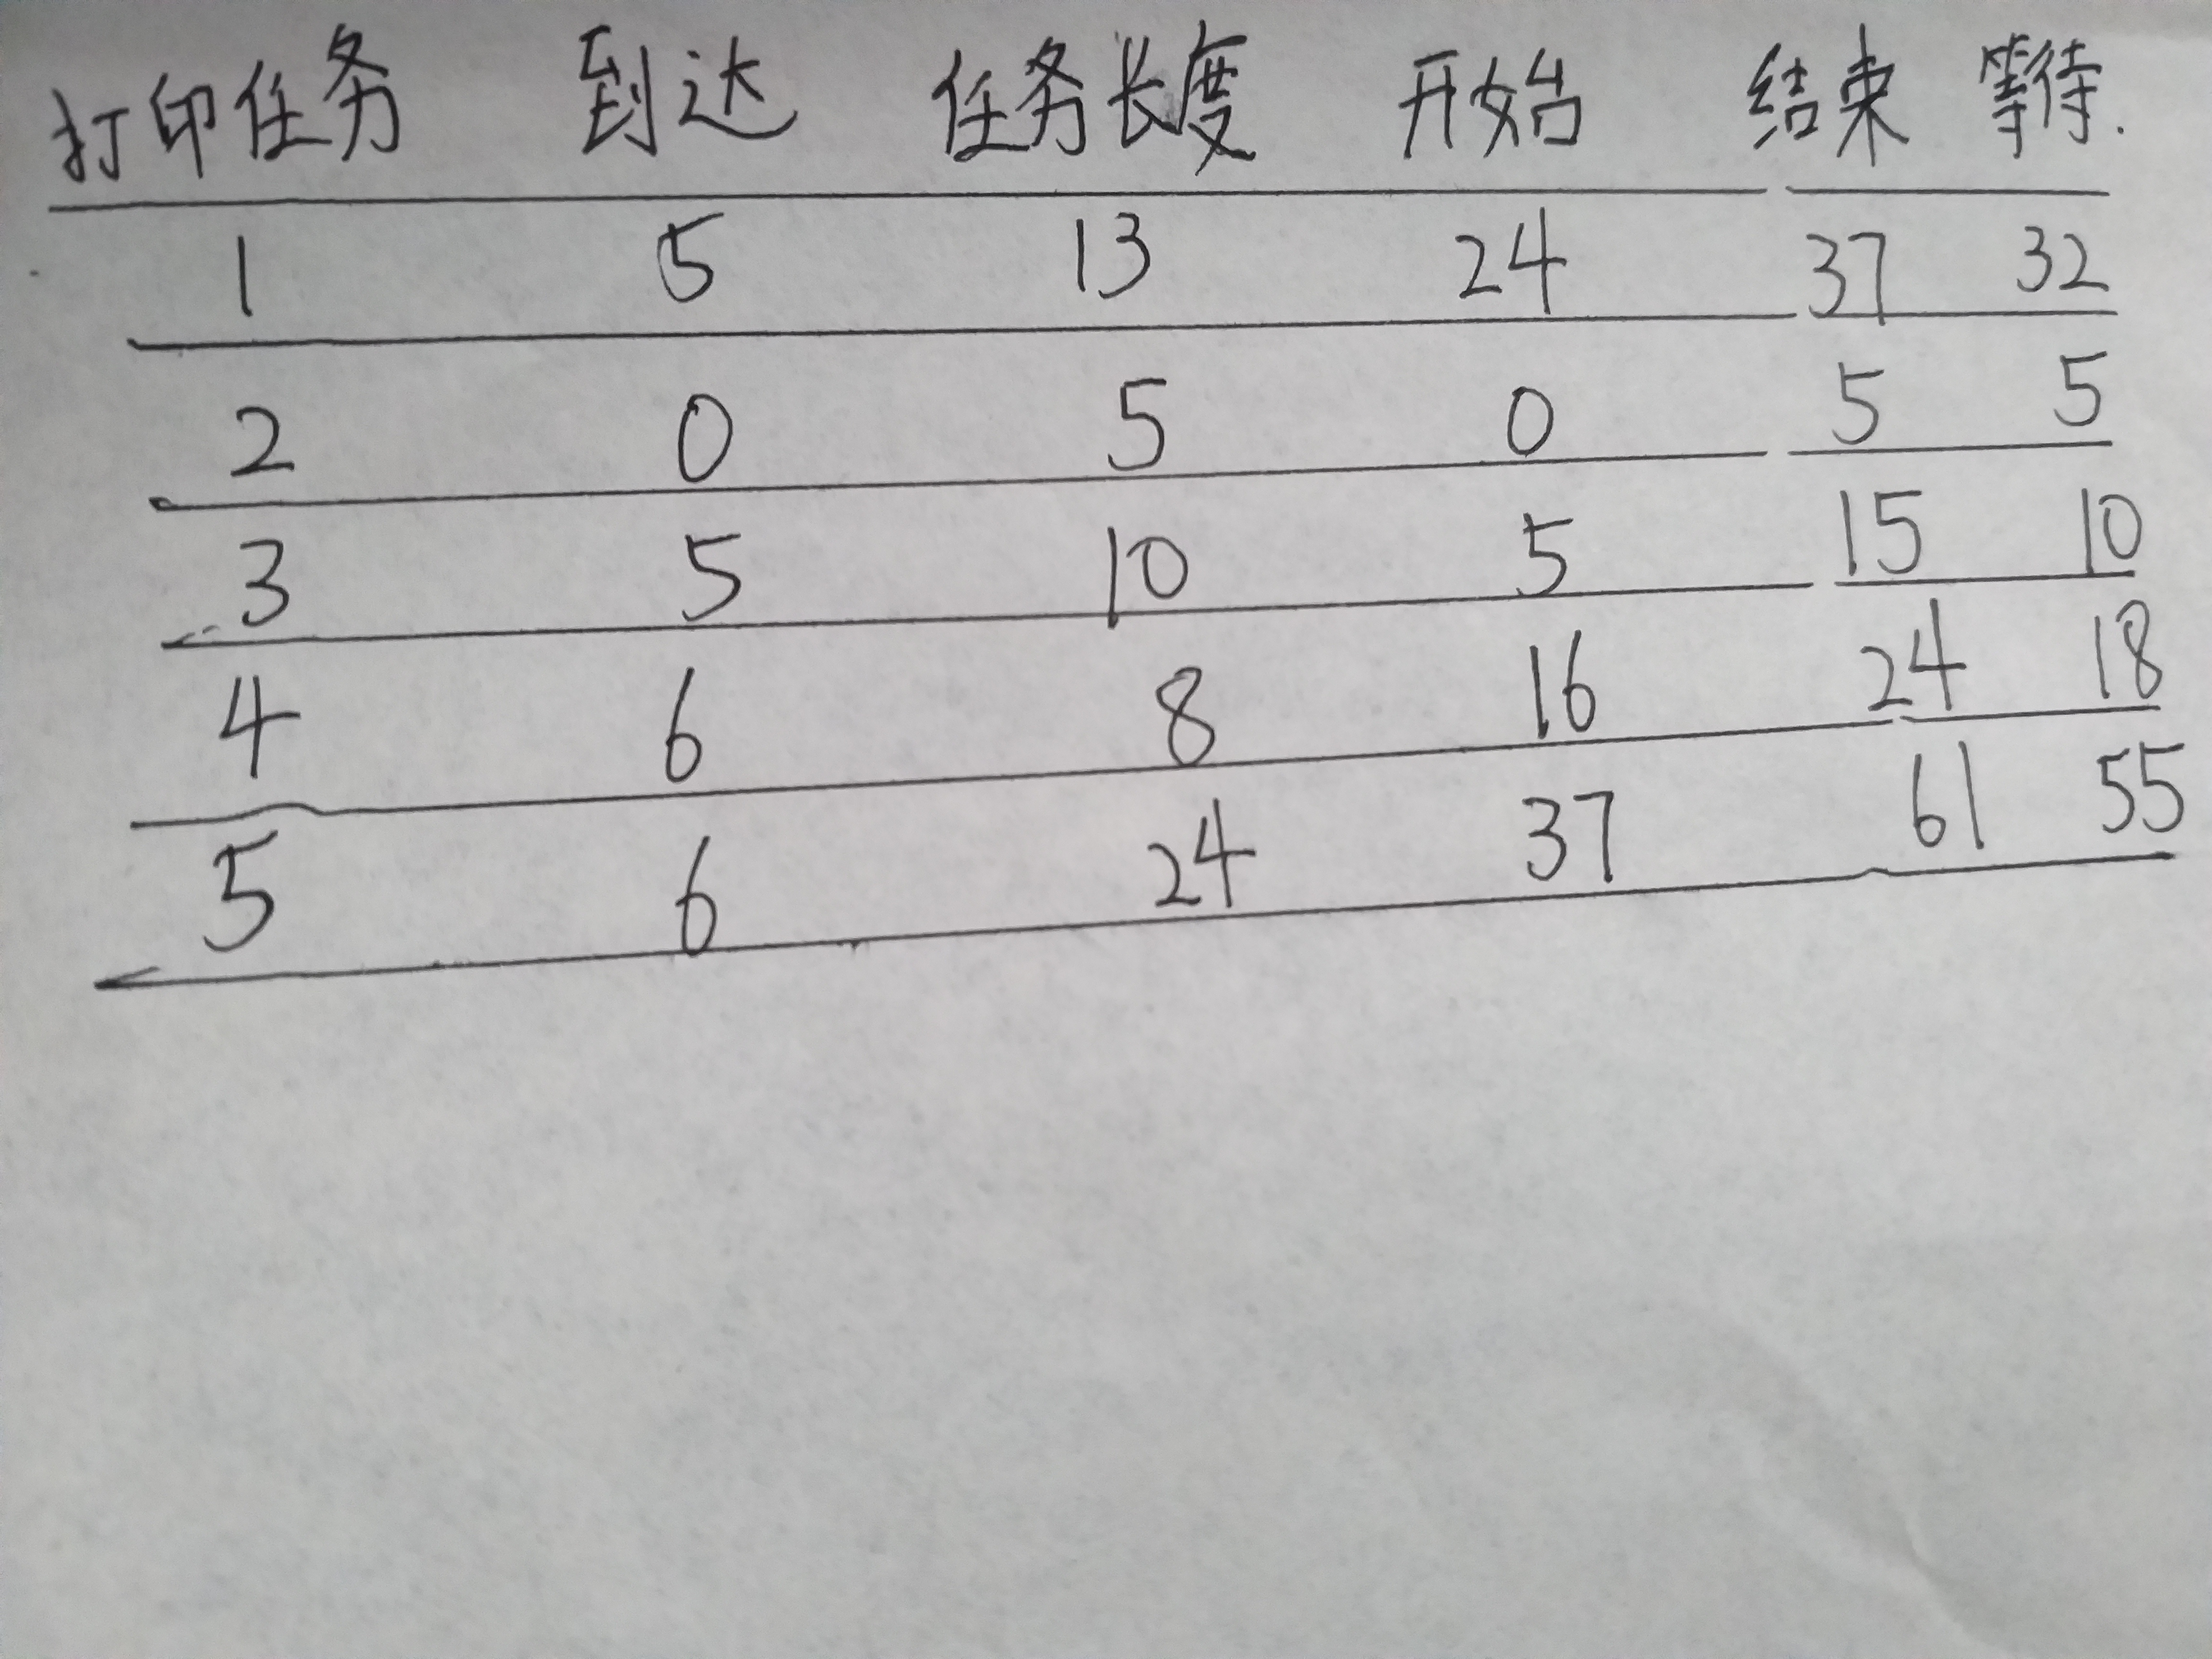 打印任务 到达 任务长度 开始 结束 等待.
1 5 13 24 37 32
2 0 5 0 5 5
3 5 10 5 15 10
4 6 8 16 24 18
5 6 24 37 61 55